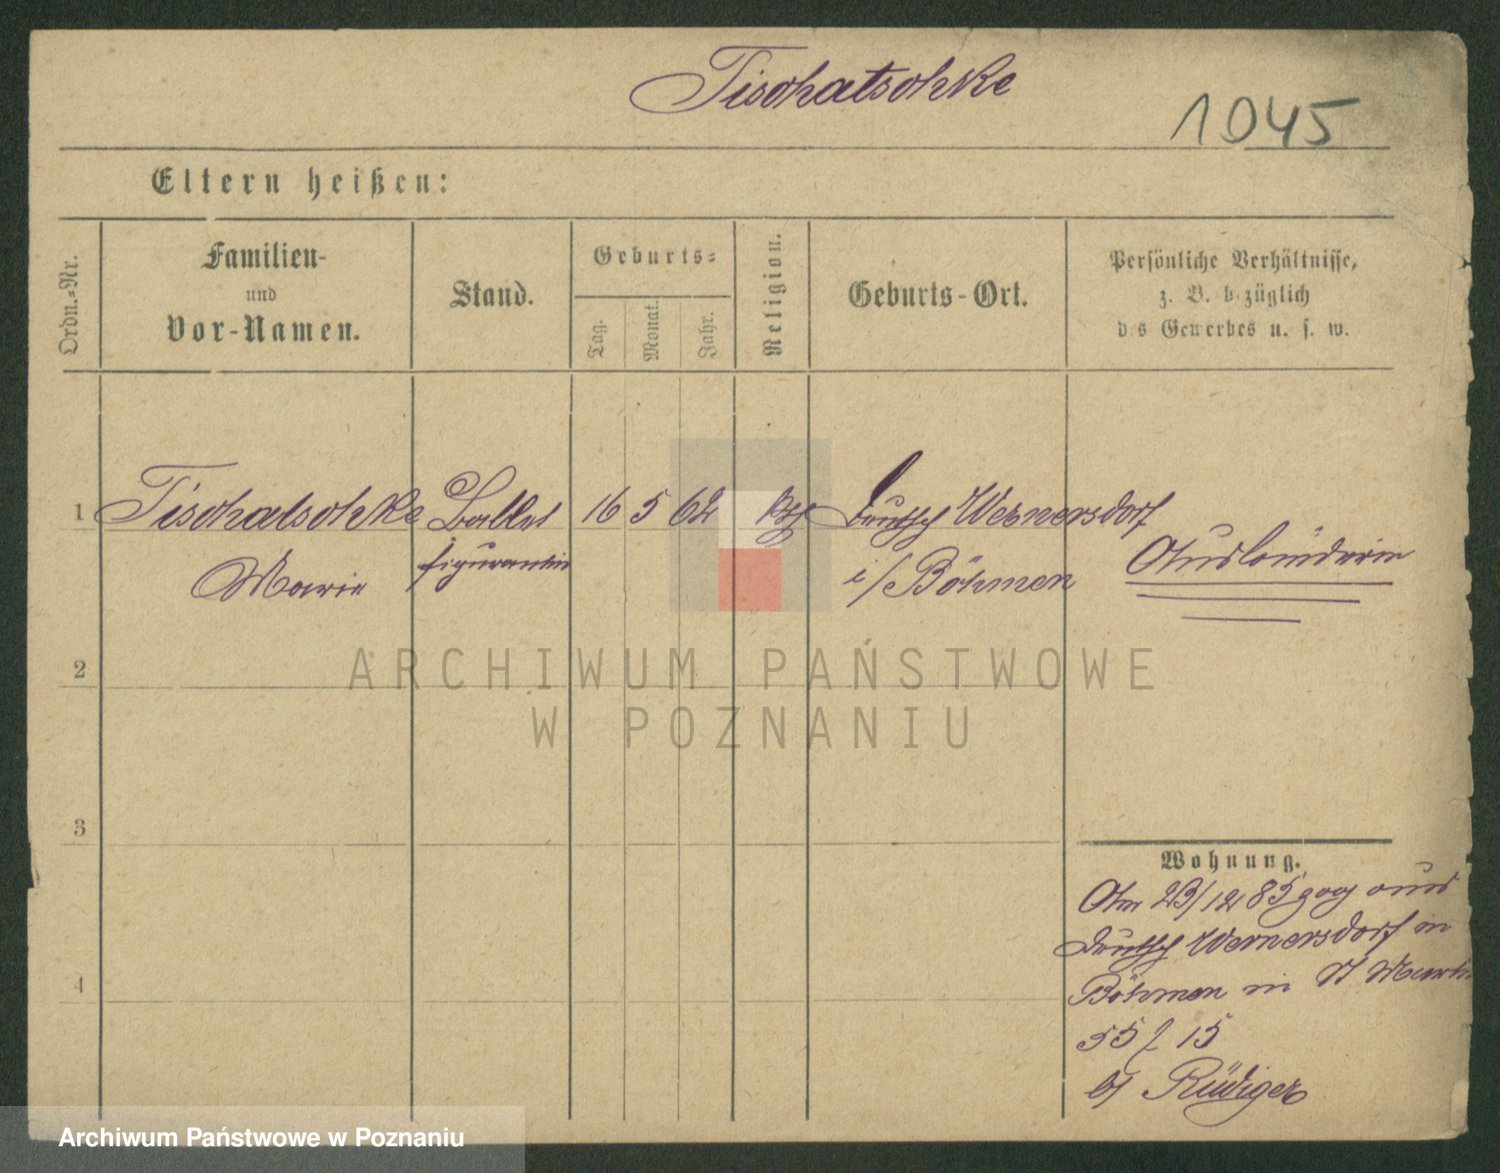 Tischatschke
1045
Eltern heißen:
Ordn.-Nr.
Familien-
und
Vor-Namen.
Stand.
Geburts-
Tag.
Monat.
Jahr.
Religion.
Geburts-Ort.
Persönliche Verhältnisse,
z. B. bezüglich
des Gewerbes u. s. w.
1 Tischatschke Ballet 16 5 62 kth Deutsch Wernersdorf
Marie figurantin i/ Böhmen Ausländerin
2
3
4
Wohnung.
Am 23/12 85 zog aus
Deutsch Wernersdorf in
Böhmen in St Martin
55 f 15
b/ Rüdiger
ARCHIWUM PAŃSTWOWE
W POZNANIU
Archiwum Państwowe w Poznaniu